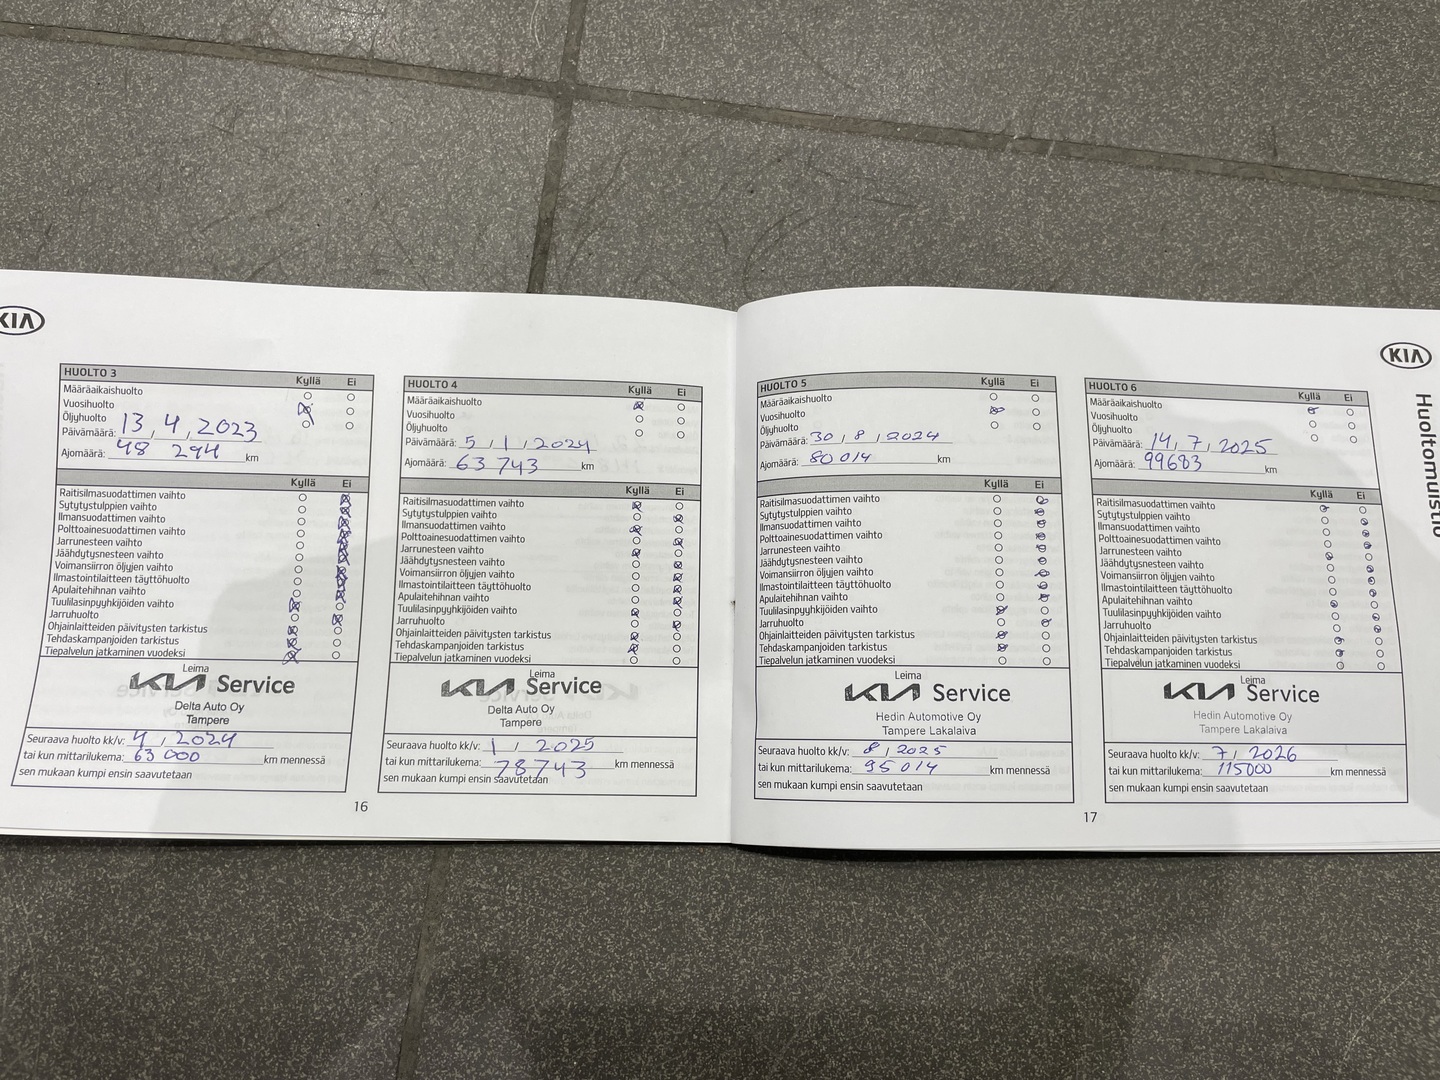 KIA
HUOLTO 3
Kyllä Ei
Määräaikaishuolto
Vuosihuolto
Öljyhuolto
Päivämäärä: 13, 4, 2023
Ajomäärä: 48 294 km
Kyllä Ei
Raitisilmasuodattimen vaihto
Sytytystulppien vaihto
Ilmansuodattimen vaihto
Polttoainesuodattimen vaihto
Jarrunesteen vaihto
Jäähdytysnesteen vaihto
Voimansiirron öljyjen vaihto
Ilmastointilaitteen täyttöhuolto
Apulaitehihnan vaihto
Tuulilasinpyyhkijöiden vaihto
Jarruhuolto
Ohjainlaitteiden päivitysten tarkistus
Tehdaskampanjoiden tarkistus
Tiepalvelun jatkaminen vuodeksi
Leima
KIA Service
Delta Auto Oy
Tampere
Seuraava huolto kk/v: 4, 2024
tai kun mittarilukema: 63 000 km mennessä
sen mukaan kumpi ensin saavutetaan
16
HUOLTO 4
Kyllä Ei
Määräaikaishuolto
Vuosihuolto
Öljyhuolto
Päivämäärä: 5, 1, 2024
Ajomäärä: 63 743 km
Kyllä Ei
Raitisilmasuodattimen vaihto
Sytytystulppien vaihto
Ilmansuodattimen vaihto
Polttoainesuodattimen vaihto
Jarrunesteen vaihto
Jäähdytysnesteen vaihto
Voimansiirron öljyjen vaihto
Ilmastointilaitteen täyttöhuolto
Apulaitehihnan vaihto
Tuulilasinpyyhkijöiden vaihto
Jarruhuolto
Ohjainlaitteiden päivitysten tarkistus
Tehdaskampanjoiden tarkistus
Tiepalvelun jatkaminen vuodeksi
Leima
KIA Service
Delta Auto Oy
Tampere
Seuraava huolto kk/v: 1, 2025
tai kun mittarilukema: 78743 km mennessä
sen mukaan kumpi ensin saavutetaan
HUOLTO 5
Kyllä Ei
Määräaikaishuolto
Vuosihuolto
Öljyhuolto
Päivämäärä: 30, 8, 2024
Ajomäärä: 80 014 km
Kyllä Ei
Raitisilmasuodattimen vaihto
Sytytystulppien vaihto
Ilmansuodattimen vaihto
Polttoainesuodattimen vaihto
Jarrunesteen vaihto
Jäähdytysnesteen vaihto
Voimansiirron öljyjen vaihto
Ilmastointilaitteen täyttöhuolto
Apulaitehihnan vaihto
Tuulilasinpyyhkijöiden vaihto
Jarruhuolto
Ohjainlaitteiden päivitysten tarkistus
Tehdaskampanjoiden tarkistus
Tiepalvelun jatkaminen vuodeksi
Leima
KIA Service
Hedin Automotive Oy
Tampere Lakalaiva
Seuraava huolto kk/v: 8, 2025
tai kun mittarilukema: 95 014 km mennessä
sen mukaan kumpi ensin saavutetaan
17
KIA
Huoltomuistio
HUOLTO 6
Kyllä Ei
Määräaikaishuolto
Vuosihuolto
Öljyhuolto
Päivämäärä: 14, 7, 2025
Ajomäärä: 99683 km
Kyllä Ei
Raitisilmasuodattimen vaihto
Sytytystulppien vaihto
Ilmansuodattimen vaihto
Polttoainesuodattimen vaihto
Jarrunesteen vaihto
Jäähdytysnesteen vaihto
Voimansiirron öljyjen vaihto
Ilmastointilaitteen täyttöhuolto
Apulaitehihnan vaihto
Tuulilasinpyyhkijöiden vaihto
Jarruhuolto
Ohjainlaitteiden päivitysten tarkistus
Tehdaskampanjoiden tarkistus
Tiepalvelun jatkaminen vuodeksi
Leima
KIA Service
Hedin Automotive Oy
Tampere Lakalaiva
Seuraava huolto kk/v: 7, 2026
tai kun mittarilukema: 115000 km mennessä
sen mukaan kumpi ensin saavutetaan